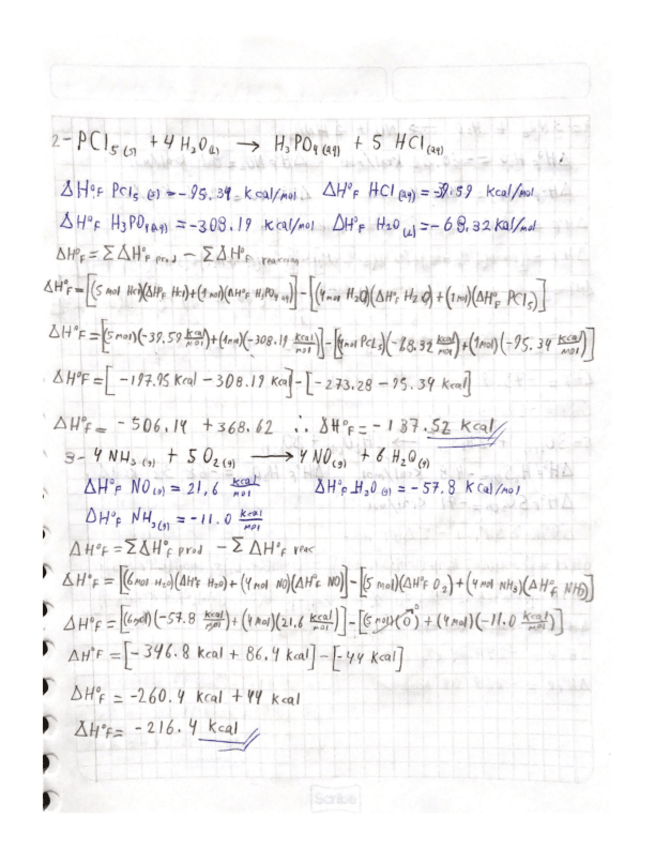 2- PCl5 (s) + 4 H2O (l) → H3PO4 (aq) + 5 HCl (aq)
ΔH°F PCl5 (s) = -95.34 Kcal/mol ΔH°F HCl (aq) = -39.59 Kcal/mol
ΔH°F H3PO4 (aq) = -308.19 Kcal/mol ΔH°F H2O (l) = -68.32 Kal/mol
ΔH°F = ΣΔH°F prod - ΣΔH°F reaccion
ΔH°F = [(5 mol HCl)(ΔH°F HCl) + (1 mol)(ΔH°F H3PO4 aq)] - [(4 mol H2O)(ΔH°F H2O) + (1 mol)(ΔH°F PCl5)]
ΔH°F = [(5 mol)(-39.59 kcal/mol) + (1 mol)(-308.19 kcal/mol)] - [(4 mol PCl5)(-68.32 kcal/mol) + (1 mol)(-95.34 kcal/mol)]
ΔH°F = [-197.95 Kcal - 308.19 Kcal] - [-273.28 - 95.34 Kcal]
ΔH°F = -506.14 + 368.62 ∴ ΔH°F = -137.52 Kcal
3- 4 NH3 (g) + 5 O2 (g) → 4 NO (g) + 6 H2O (g)
ΔH°F NO (g) = 21,6 kcal/mol ΔH°F H2O (g) = -57.8 Kcal/mol
ΔH°F NH3 (g) = -11.0 kcal/mol
ΔH°F = ΣΔH°F prod - ΣΔH°F reac
ΔH°F = [(6 mol H2O)(ΔH°F H2O) + (4 mol NO)(ΔH°F NO)] - [(5 mol)(ΔH°F O2) + (4 mol NH3)(ΔH°F NH3)]
ΔH°F = [(6 mol)(-57.8 kcal/mol) + (4 mol)(21.6 kcal/mol)] - [(5 mol)(0) 0 + (4 mol)(-11.0 kcal/mol)]
ΔH°F = [-346.8 kcal + 86.4 kcal] - [-44 kcal]
ΔH°F = -260.4 kcal + 44 kcal
ΔH°F = -216.4 kcal
Scribe